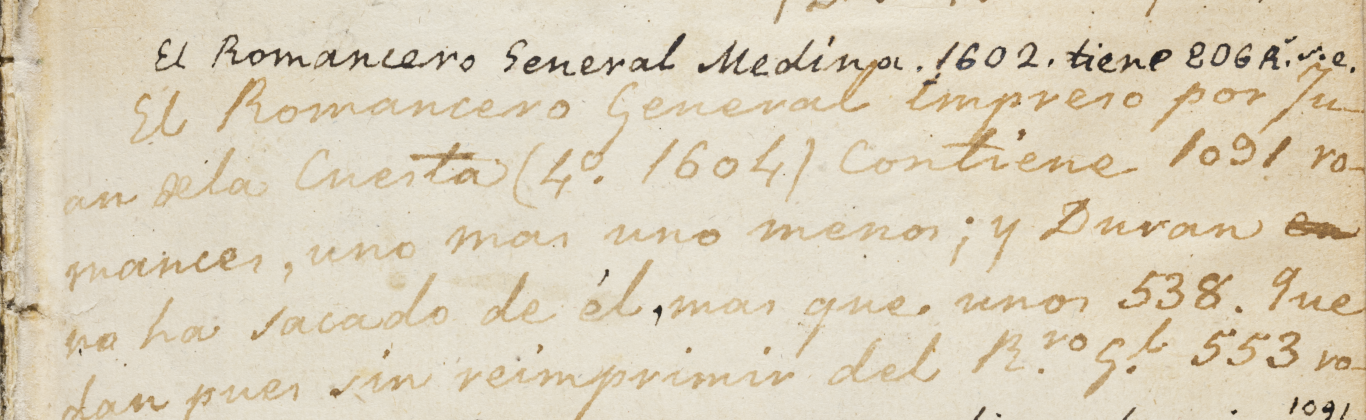 El Romancero General Medina. 1602. tiene 806 R.
El Romancero General impreso por Ju-
an dela Cuesta (4º. 1604) Contiene 1091 ro-
mances, uno mas uno menos; y Duran en
no ha sacado de él, mas que unos 538. Que
dan pues sin reimprimir del R.ro G.l 553 ro-
1091